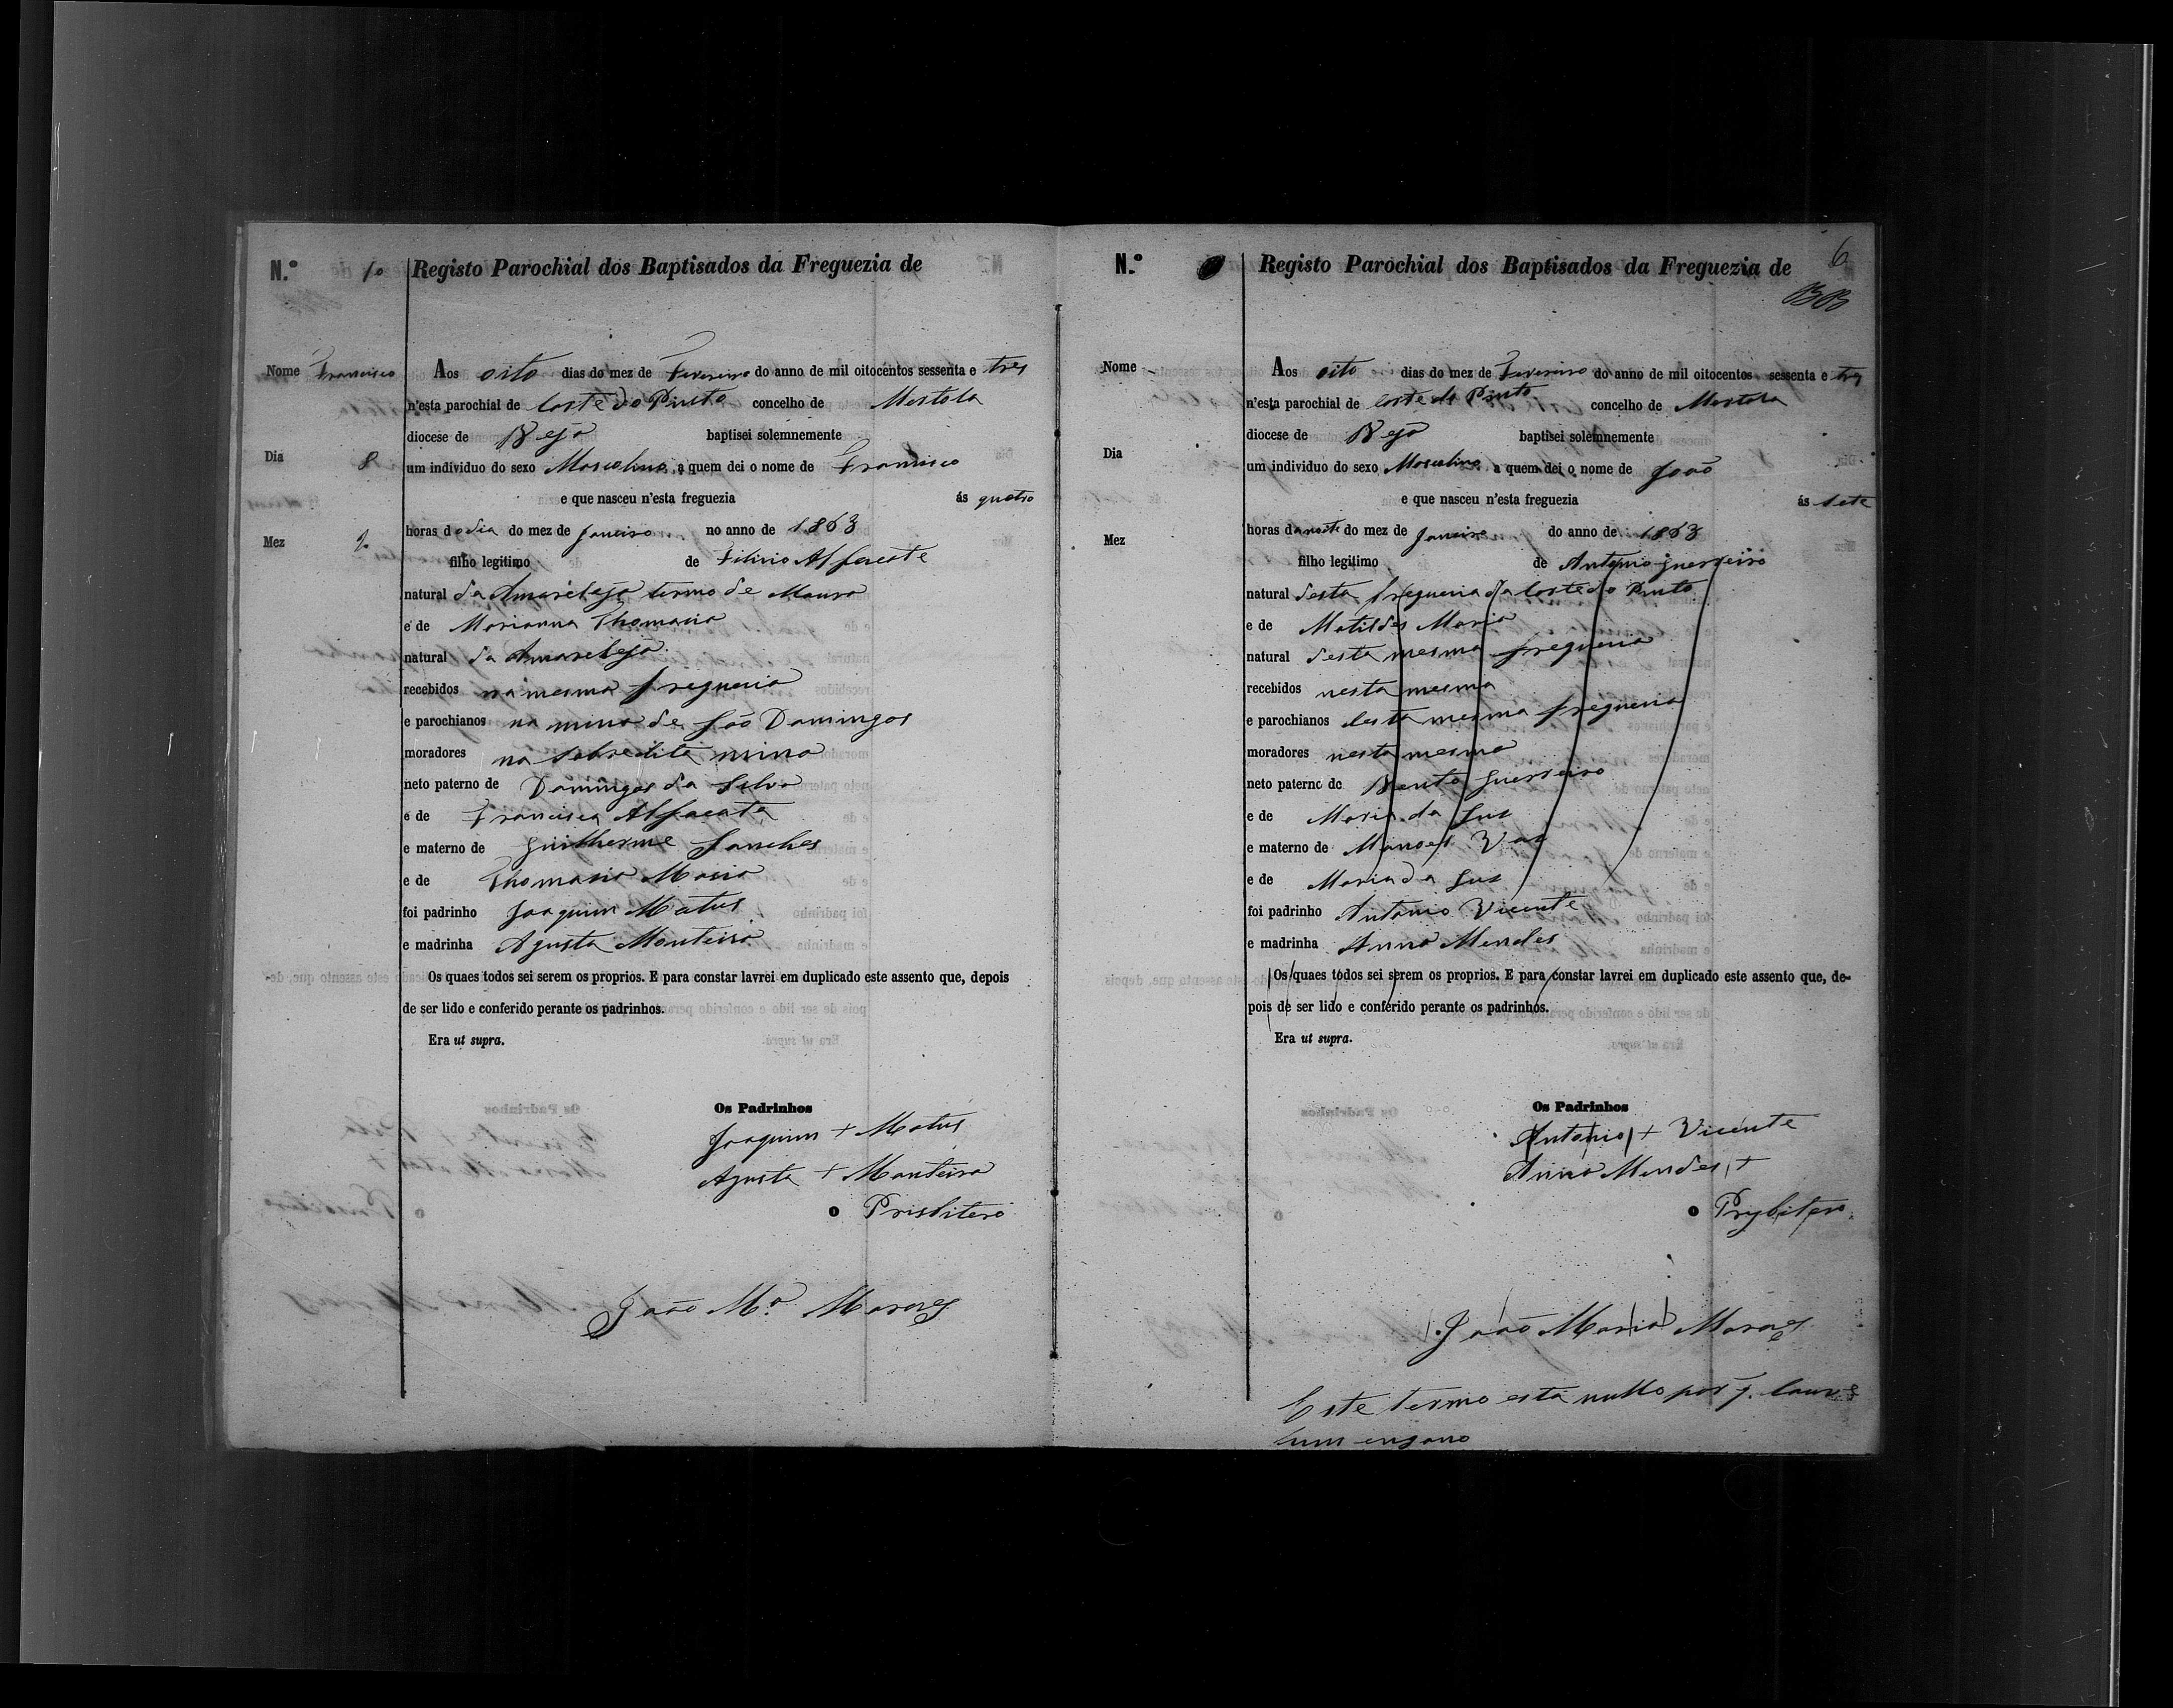 N.º 10 Registo Parochial dos Baptisados da Freguezia de
Nome Francisco Aos oito dias do mez de Fevereiro do anno de mil oitocentos sessenta e tres
n'esta parochial de Corte do Pinto concelho de Mertola
diocese de Beja baptisei solemnemente
Dia 8 um individuo do sexo Masculino a quem dei o nome de Francisco
e que nasceu n'esta freguezia ás quatro
Mez 2 horas do dia do mez de Janeiro no anno de 1863
filho legitimo de
natural da Amareleja termo de Moura
e de Marianna Thomazia
natural da Amareleja
recebidos na mesma freguesia
e parochianos na mina de São Domingos
moradores na sobredita mina
neto paterno de Domingos da Silva
e de Francisca Alfacata
e materno de Guilherme Sanches
e de Thomasia Maria
foi padrinho Joaquim Matus
e madrinha Agusta Monteira
Os quaes todos sei serem os proprios. E para constar lavrei em duplicado este assento que, depois
de ser lido e conferido perante os padrinhos.
Era ut supra.
Os Padrinhos
Joaquim + Matus
Agusta + Monteira
o Prisbitero
João M.ª Moraes
6
N.º Registo Parochial dos Baptisados da Freguezia de
Nome Aos oito dias do mez de Fevereiro do anno de mil oitocentos sessenta e tres
n'esta parochial de Corte do Pinto concelho de Mertola
diocese de Beja baptisei solemnemente
Dia um individuo do sexo Masculino a quem dei o nome de João
e que nasceu n'esta freguezia ás sete
Mez horas da noite do mez de Janeiro do anno de 1863
filho legitimo de Antonio Guerreiro
natural desta freguesia da Corte do Pinto
e de Matildes Maria
natural desta mesma freguesia
recebidos nesta mesma
e parochianos desta mesma freguesia
moradores nesta mesma
neto paterno de Bento Guerreiro
e de Maria da Luz
e materno de Manoel Vaz
e de Maria da Luz
foi padrinho Antonio Vicente
e madrinha Anna Mendes
Os quaes todos sei serem os proprios. E para constar lavrei em duplicado este assento que, de-
pois de ser lido e conferido perante os padrinhos.
Era ut supra.
Os Padrinhos
Antonio + Vicente
Anna Mendes +
o Prysbitero
João Maria Moraes
Este termo está nullo por
hum engano